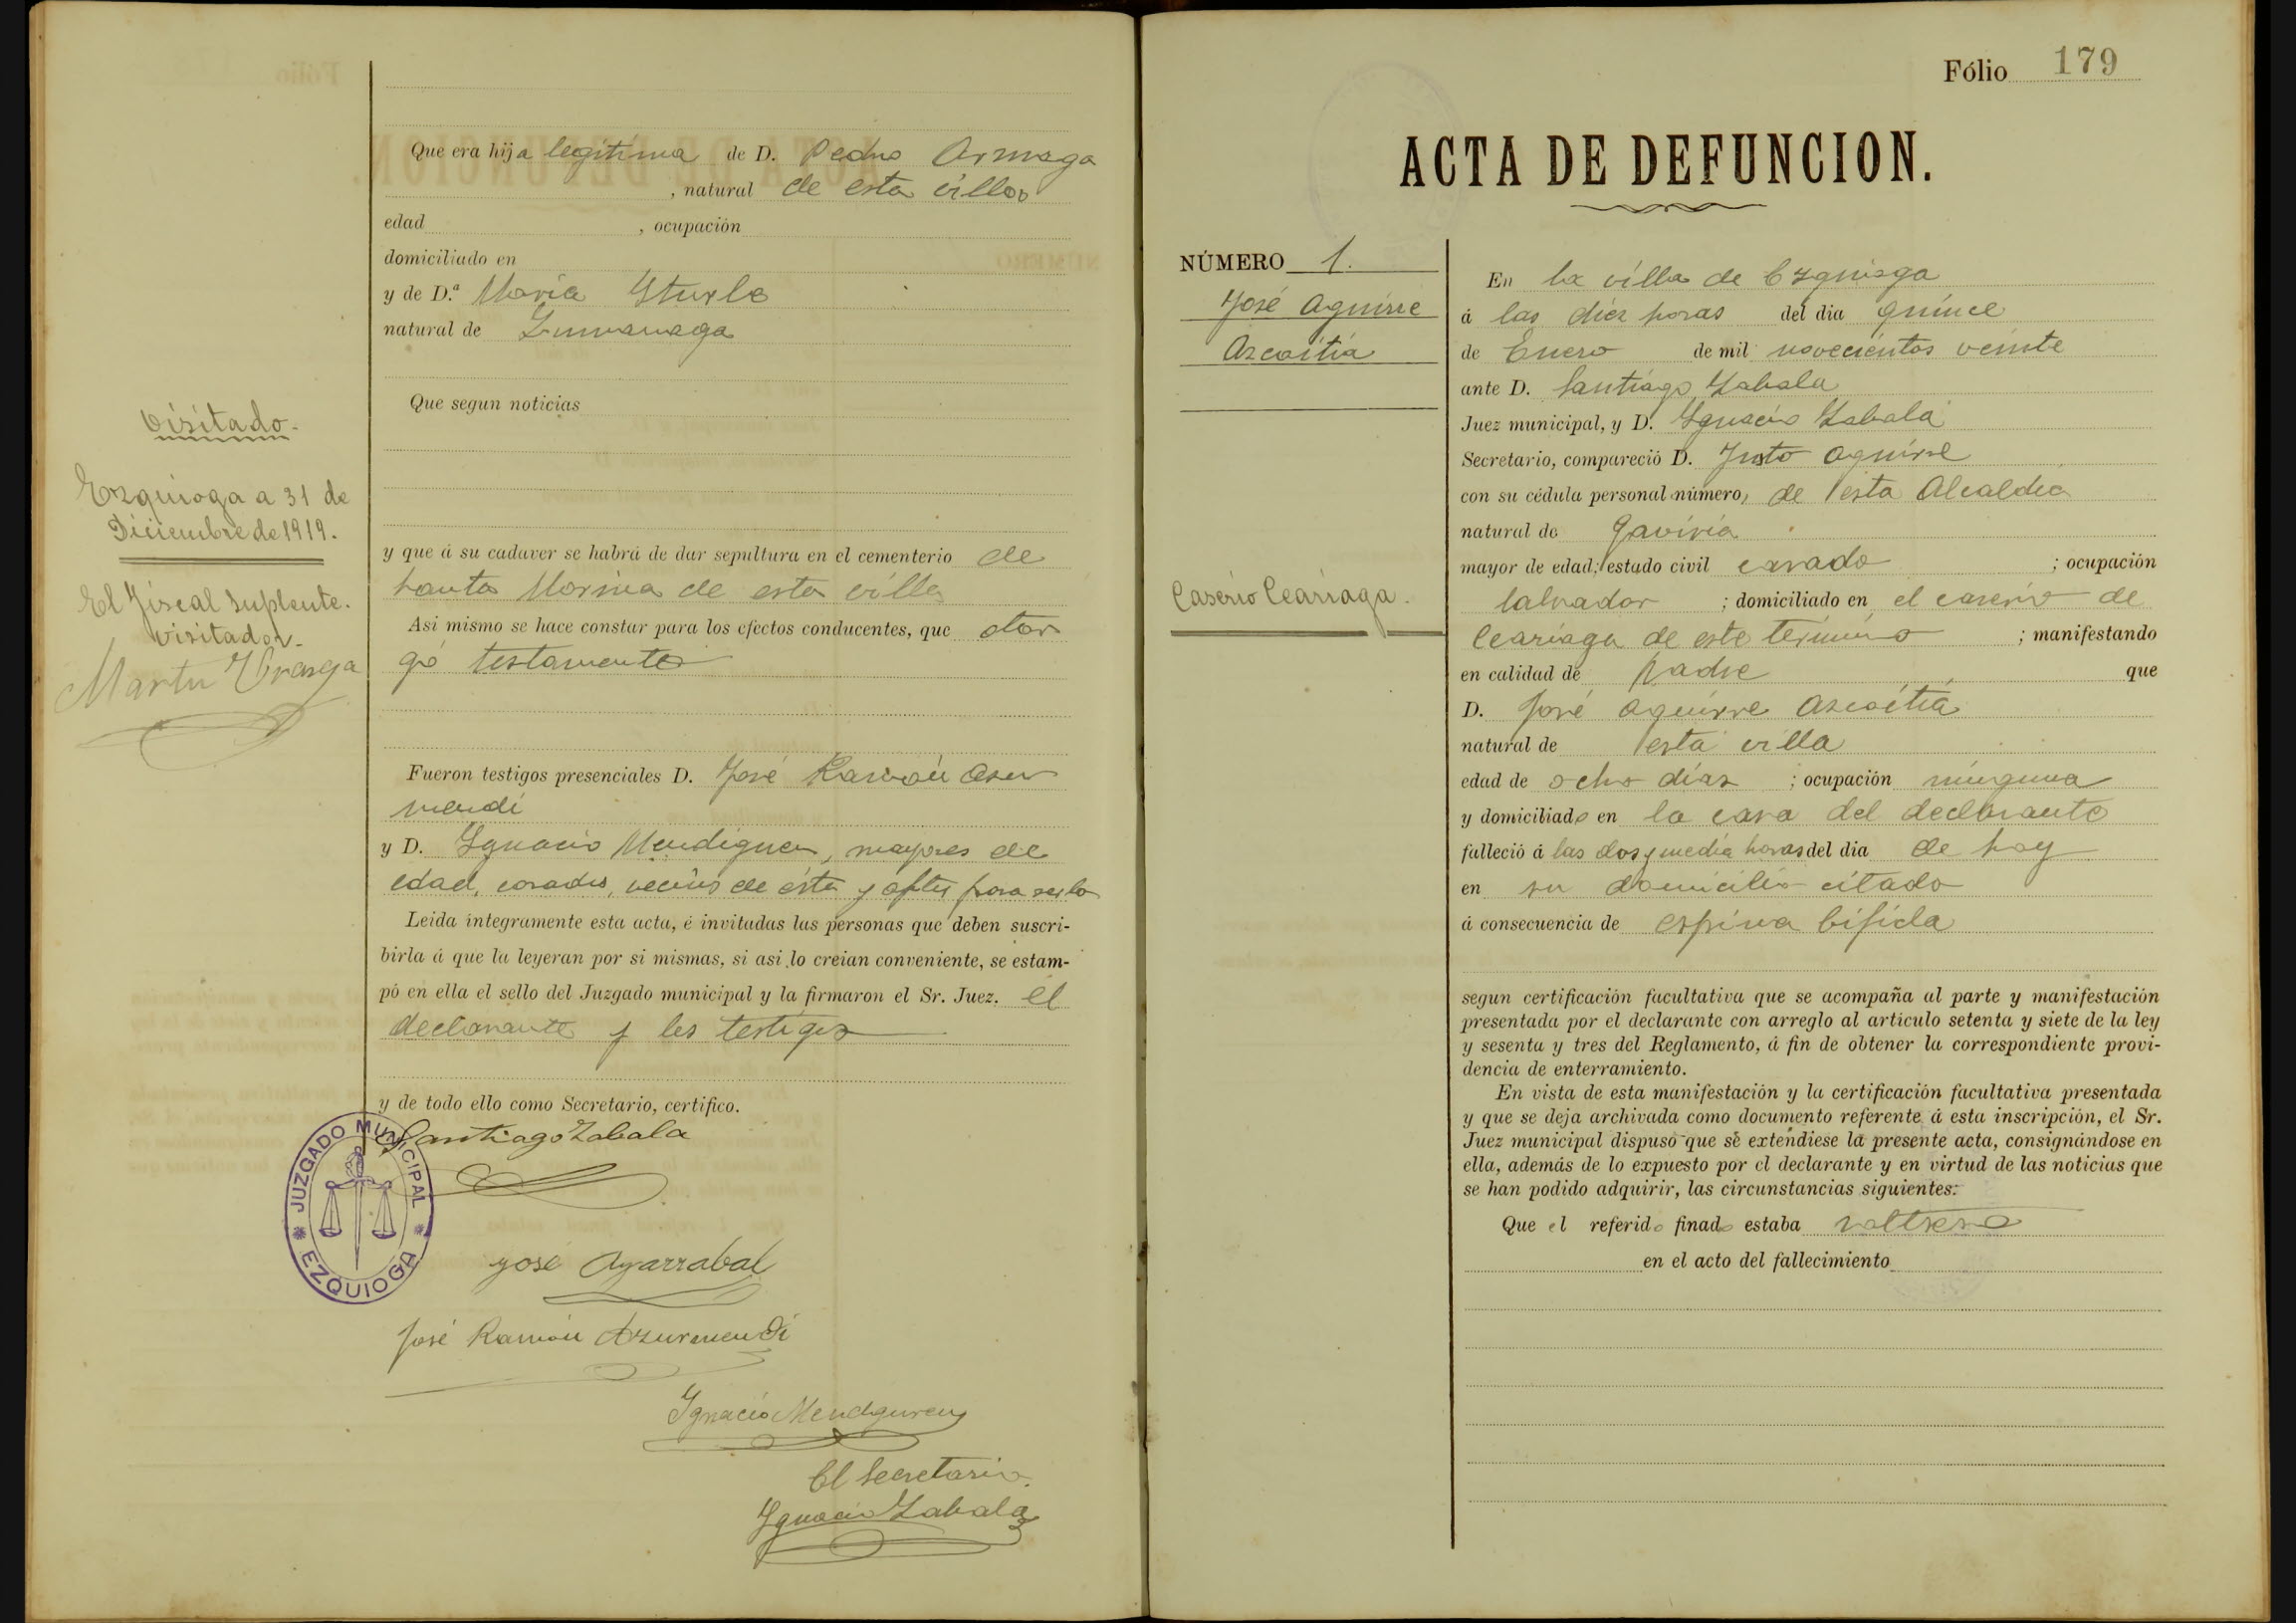 Que era hija legítima de D. Pedro Armaga
, natural de esta villa
edad , ocupación
domiciliado en
y de D.ª María Yturbe
natural de Zumarraga
Que segun noticias
y que á su cadaver se habrá de dar sepultura en el cementerio de
Santa Marina de esta villa
Asi mismo se hace constar para los efectos conducentes, que otor
gó testamento
Fueron testigos presenciales D. José Ramón Azur
mendi
y D. Ygnacio Mendiguren, mayores de
edad, casados, vecinos de ésta y aptos para serlo
Leida íntegramente esta acta, é invitadas las personas que deben suscri-
birla á que la leyeran por si mismas, si asi lo creian conveniente, se estam-
pó en ella el sello del Juzgado municipal y la firmaron el Sr. Juez. el
declarante y los testigos
y de todo ello como Secretario, certifico.
Santiago Zabala
José Ayarzabal
José Ramón Azurmendi
Ignacio Mendiguren
El Secretario
Ygnacio Zabala
JUZGADO MUNICIPAL
EZQUIOGA
Visitado.
Ezquioga a 31 de
Diciembre de 1919.
El Fiscal Suplente.
Visitador.
Martin
Fólio 179
ACTA DE DEFUNCION.
NÚMERO 1.
José Aguirre
Azcoitia
Caserío Ceariaga.
En la villa de Ezquioga
á las diez horas del dia quince
de Enero de mil novecientos veinte
ante D. Santiago Zabala
Juez municipal, y D. Ygnacio Zabala
Secretario, compareció D. Justo Aguirre
con su cédula personal número, de esta Alcaldía
natural de Gaviria
mayor de edad; estado civil casado ; ocupación
labrador ; domiciliado en el caserío de
Ceariaga de este término ; manifestando
en calidad de padre que
D. José Aguirre Azcoitia
natural de esta villa
edad de ocho días ; ocupación ninguna
y domiciliado en la casa del declarante
falleció á las dos y media horas del dia de hoy
en su domicilio citado
á consecuencia de espina bífida
segun certificación facultativa que se acompaña al parte y manifestación
presentada por el declarante con arreglo al artículo setenta y siete de la ley
y sesenta y tres del Reglamento, á fin de obtener la correspondiente provi-
dencia de enterramiento.
En vista de esta manifestación y la certificación facultativa presentada
y que se deja archivada como documento referente á esta inscripción, el Sr.
Juez municipal dispuso que se extendiese la presente acta, consignándose en
ella, además de lo expuesto por el declarante y en virtud de las noticias que
se han podido adquirir, las circunstancias siguientes:
Que el referido finado estaba soltero
en el acto del fallecimiento